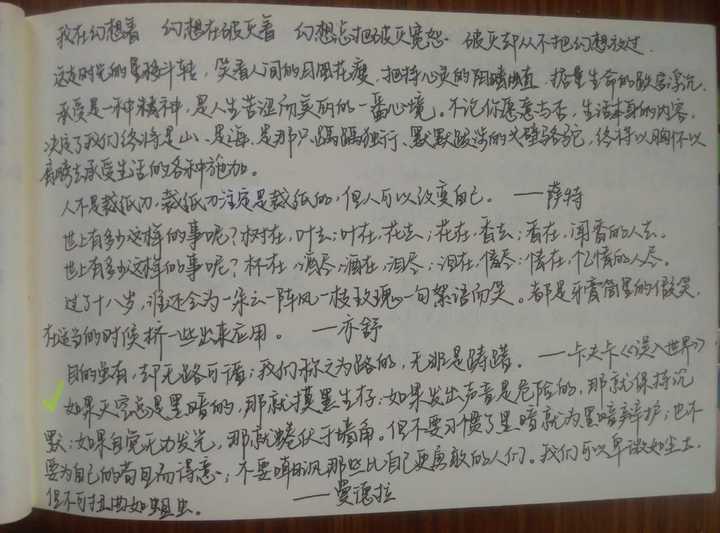 我在幻想着 幻想在破灭着 幻想总把破灭宽恕 破灭却从不把幻想放过.
这走时光的星移斗转，笑看人间的日圆花瘦，把持心灵的阴晴曲直，掂量生命的跌宕浮沉.
承受是一种精神，是人生苦涩而实丽的一番心境。不论你愿意与否，生活本身的内容
决定了我们终将是山、是海、是那只踽踽独行、默默跋涉的戈壁骆驼，终将以胸怀以
高嗓去承受生活的各种施加。
人不是裁纸刀，裁纸刀注定是裁纸的，但人可以改变自己。 ——萨特
世上有多少这样的事呢？树在，叶去；叶在，花去；花在，香去；香在，闻香的人去。
世上有多少这样的事呢？杯在，酒尽；酒在，泪尽；泪在，情尽；情在，忆情的人尽。
过了十八岁，谁还会为一朵云一阵风一枝玫瑰一句絮语而笑。都是牙膏筒里的假笑，
在适当的时候挤一些出来应用。 ——亦舒
目的虽有，却无路可循；我们称之为路的，无非是踌躇。 ——卡夫卡《误入世界》
如果天空总是黑暗的，那就摸黑生存；如果发出声音是危险的，那就保持沉
默；如果自觉无力发光，那就蜷伏于墙角。但不要习惯了黑暗就为黑暗辩护；也不
要为自己的苟且而得意；不要嘲讽那些比自己更勇敢的人们。我们可以卑微如尘土，
但不可扭曲如蛆虫。
——曼德拉